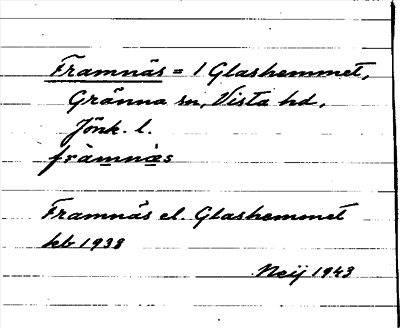 Framnäs = 1 Glashemmet,
Gränna sn, Vista hd,
Jönk. l.
främnäs
Framnäs el. Glashemmet
kb 1938
Neij 1943